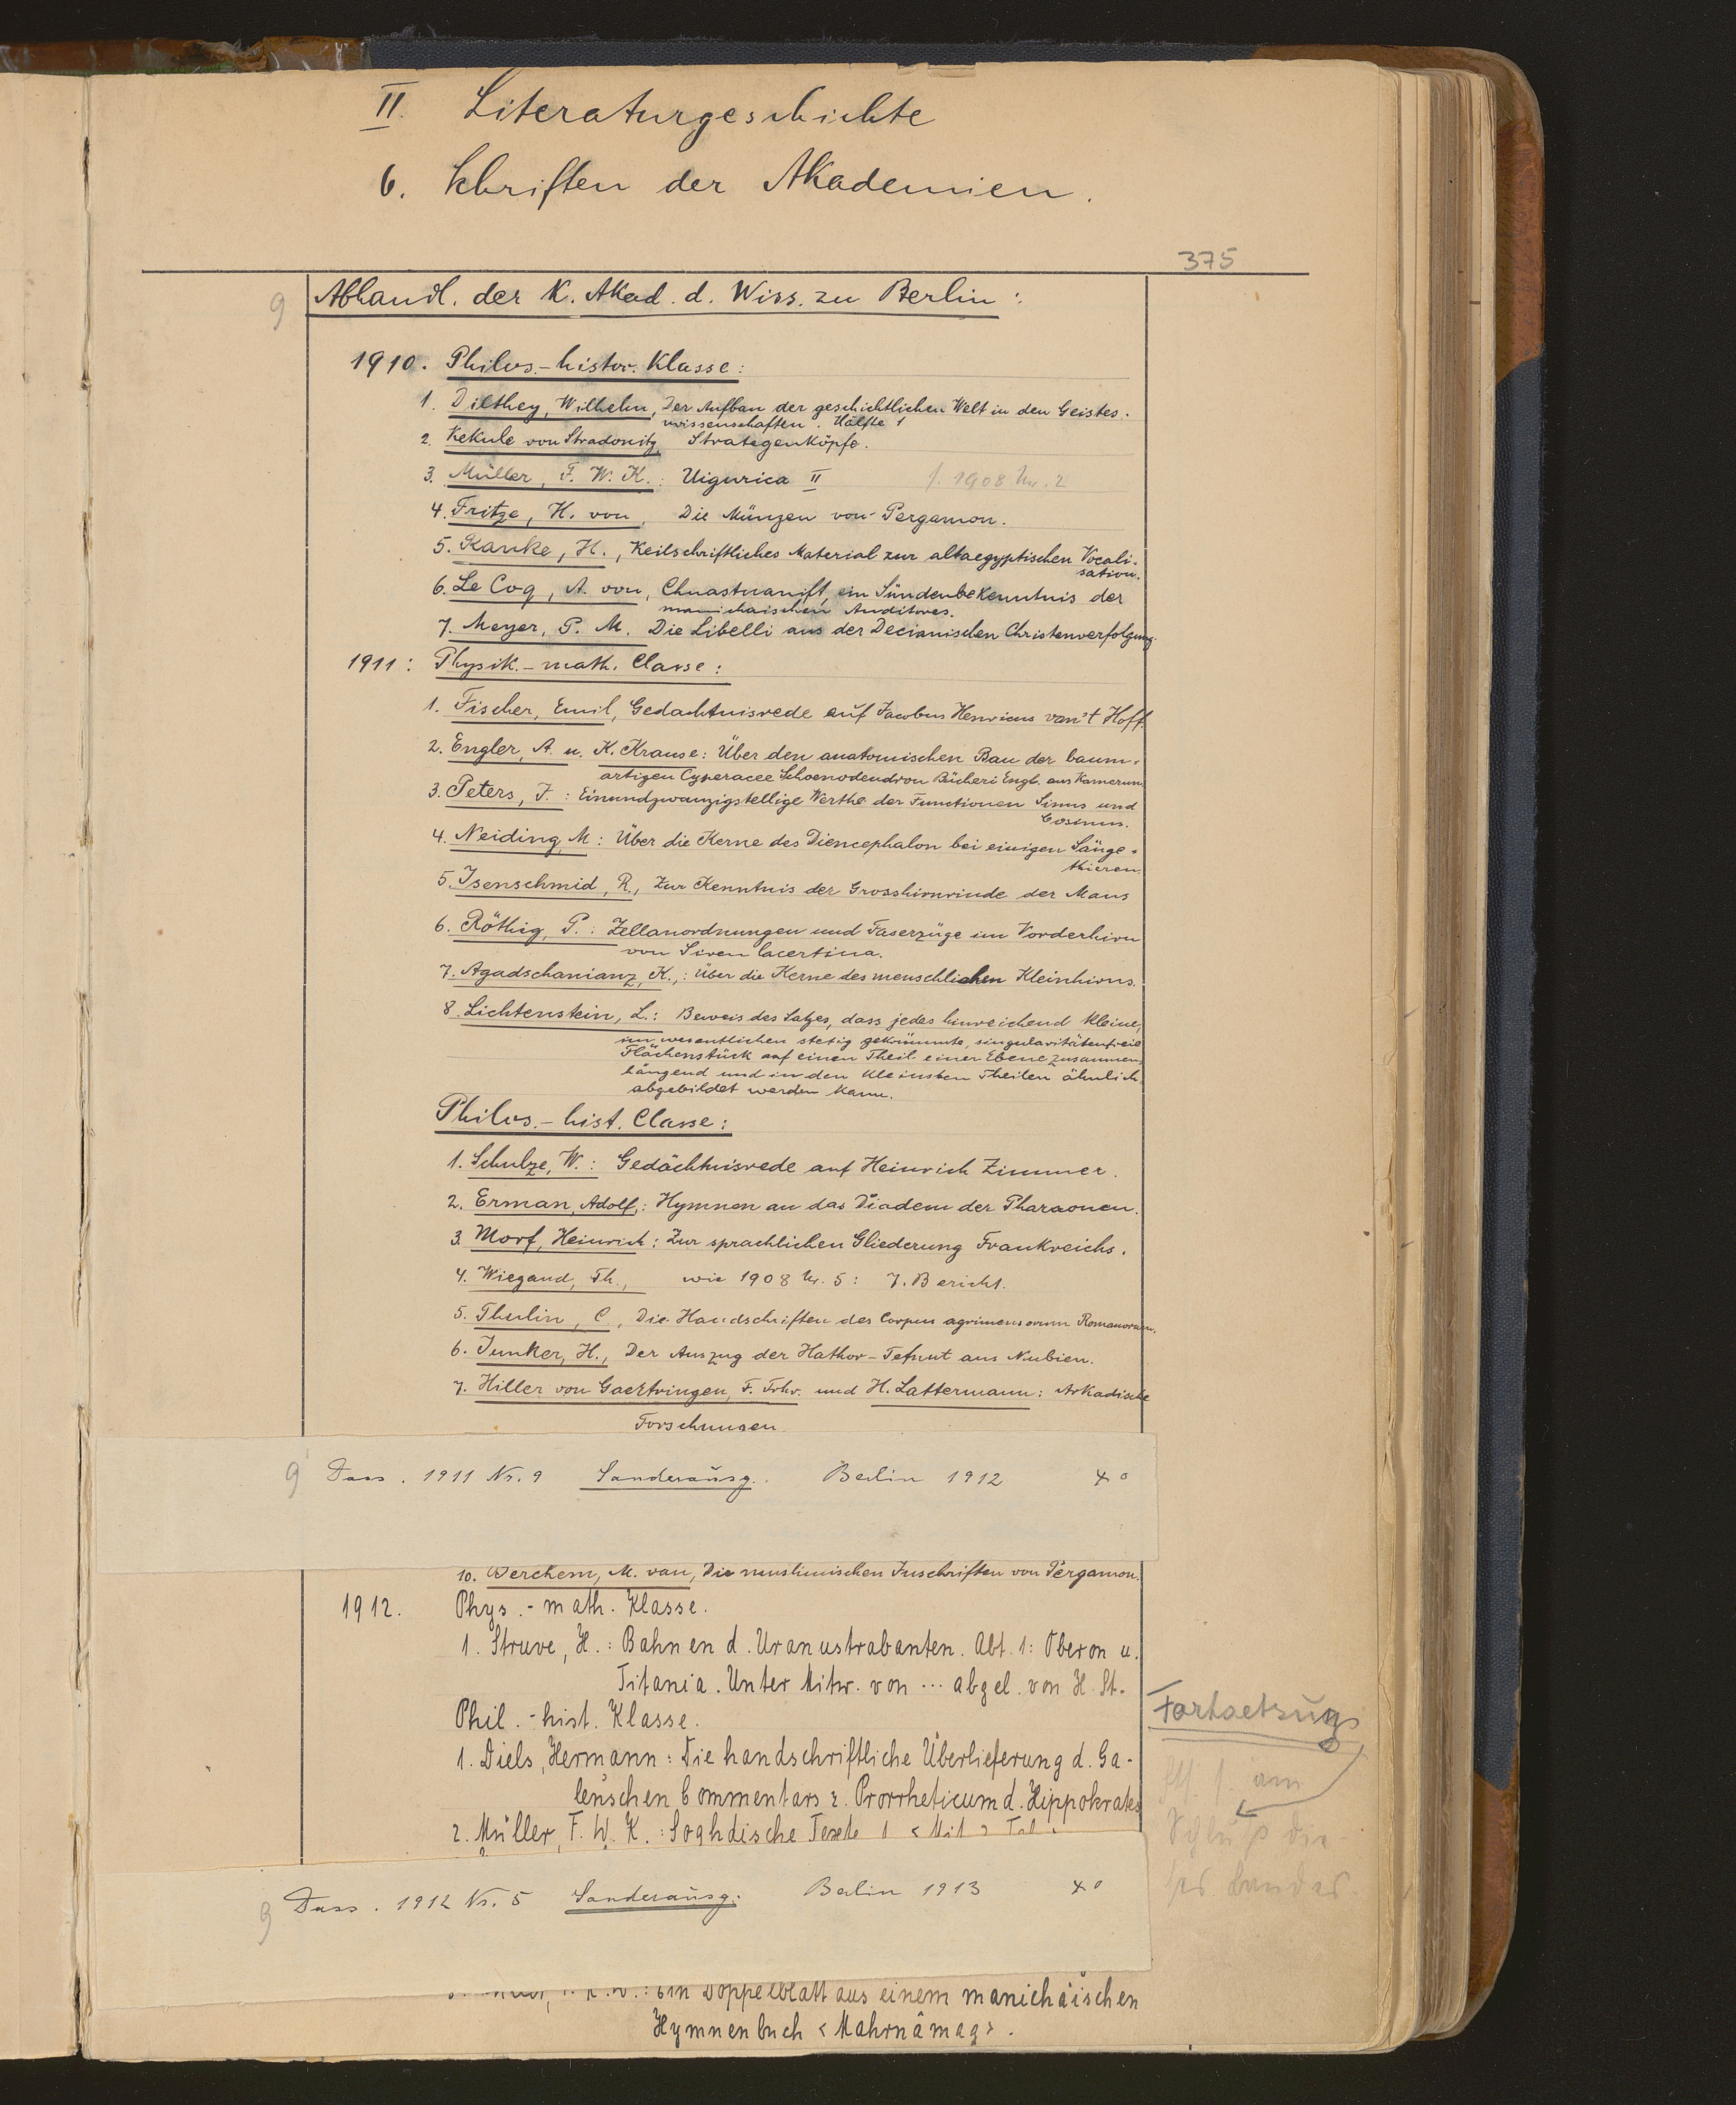 II. Literaturgeschichte
6. Schriften der Akademien.
375
9 Abhandl. der K. Akad. d. Wiss. zu Berlin:
1910. Philos.-histor. Klasse:
1. Dilthey, Wilhelm, Der Aufbau der geschichtlichen Welt in den Geistes-
wissenschaften. Hälfte 1
2. Kekule von Stradonitz, Strategenköpfe.
3. Müller, F. W. K.: Uigurica II f. 1908 Nr. 2
4. Fritze, H. von, Die Münzen von Pergamon.
5. Ranke, H., Keilschriftliches Material zur altaegyptischen Vocali-
sation.
6. Le Coq, A. von, Chuastuanift, ein Sündenbekenntnis der
manichaischen Auditores.
7. Meyer, P. M. Die Libelli aus der Decianischen Christenverfolgung.
1911: Physik.-math. Classe:
1. Fischer, Emil, Gedachtnisrede auf Jacobus Henricus van't Hoff.
2. Engler, A. u. K. Krause: Über den anatomischen Bau der baum-
artigen Cyperacee Schoenodendron Bücheri Engl. aus Kamerun
3. Peters, J.: Einundzwanzigstellige Werthe der Functionen Sinus und
Cosinus.
4. Neiding, M: Über die Kerne des Diencephalon bei einigen Säuge-
thieren.
5. Isenschmid, R., Zur Kenntnis der Grosshirnrinde der Maus
6. Röthig, P.: Zellanordnungen und Faserzüge im Vorderhirn
von Siren lacertina.
7. Agadschanianz, K.,: Über die Kerne des menschlichen Kleinhirns.
8. Lichtenstein, L.: Beweis des Satzes, dass jedes hinreichend kleine,
im wesentlichen stetig gekrümmte, singularitätenfreie
Flächenstück auf einen Theil einer Ebene zusammen-
hängend und in den kleinsten Theilen ähnlich
abgebildet werden kann.
Philos.-hist. Classe:
1. Schulze, W.: Gedächtnisrede auf Heinrich Zimmer.
2. Erman, Adolf,: Hymnen an das Diadem der Pharaonen.
3. Morf, Heinrich: Zur sprachlichen Gliederung Frankreichs.
4. Wiegand, Th., wie 1908 Nr. 5: 7. Bericht.
5. Thulin, C., Die Handschriften des Corpus agrimensorum Romanorum.
6. Junker, H., Der Auszug der Hathor-Tefnut aus Nubien.
7. Hiller von Gaertringen, F. Frhr. und H. Lattermann: Arkadische
Forschungen
9 Dass. 1911 Nr. 9 Sonderausg. Berlin 1912 4°
10. Berchem, M. van, Die muslimischen Inschriften von Pergamon.
1912. Phys.-math. Klasse.
1. Struve, H.: Bahnen d. Uranustrabanten. Abt. 1: Oberon u.
Titania. Unter Mitw. von ... abgel. von H. St.
Phil.-hist. Klasse.
1. Diels, Hermann: Die handschriftliche Überlieferung d. Ga-
lenschen Commentars z. Prorrheticum d. Hippokrates
2. Müller, F. W. K.: Soghdische Texte 1 <Mit 2 Taf.
Fortsetzung
am
Schluß die-
ses Bandes
9 Dass. 1912 Nr. 5 Sonderausg. Berlin 1913 4°
Ein Doppelblatt aus einem manichäischen
Hymnenbuch <Mahrnâmag>.